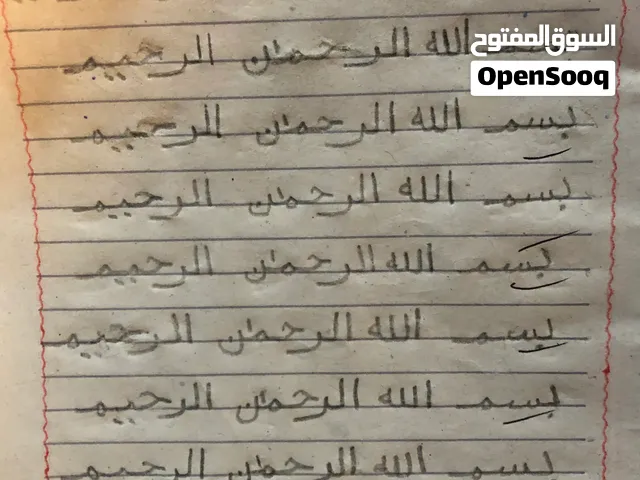 السوق المفتوح
OpenSooq
الله الرحمن الرحيم
بسم الله الرحمن الرحيم
بسم الله الرحمن الرحيم
بسم الله الرحمن الرحيم
بسم الله الرحمن الرحيم
بسم الله الرحمن الرحيم
بسم الله الرحمن الرحيم